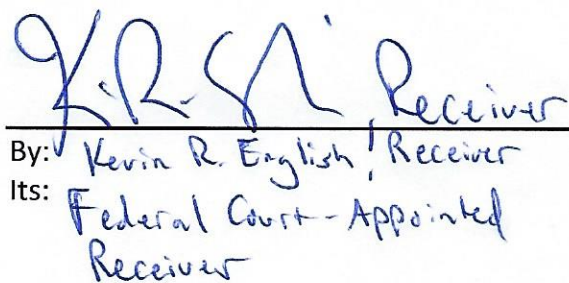 K. R. , Receiver
By: Kevin R. English, Receiver
Its: Federal Court-Appointed
Receiver